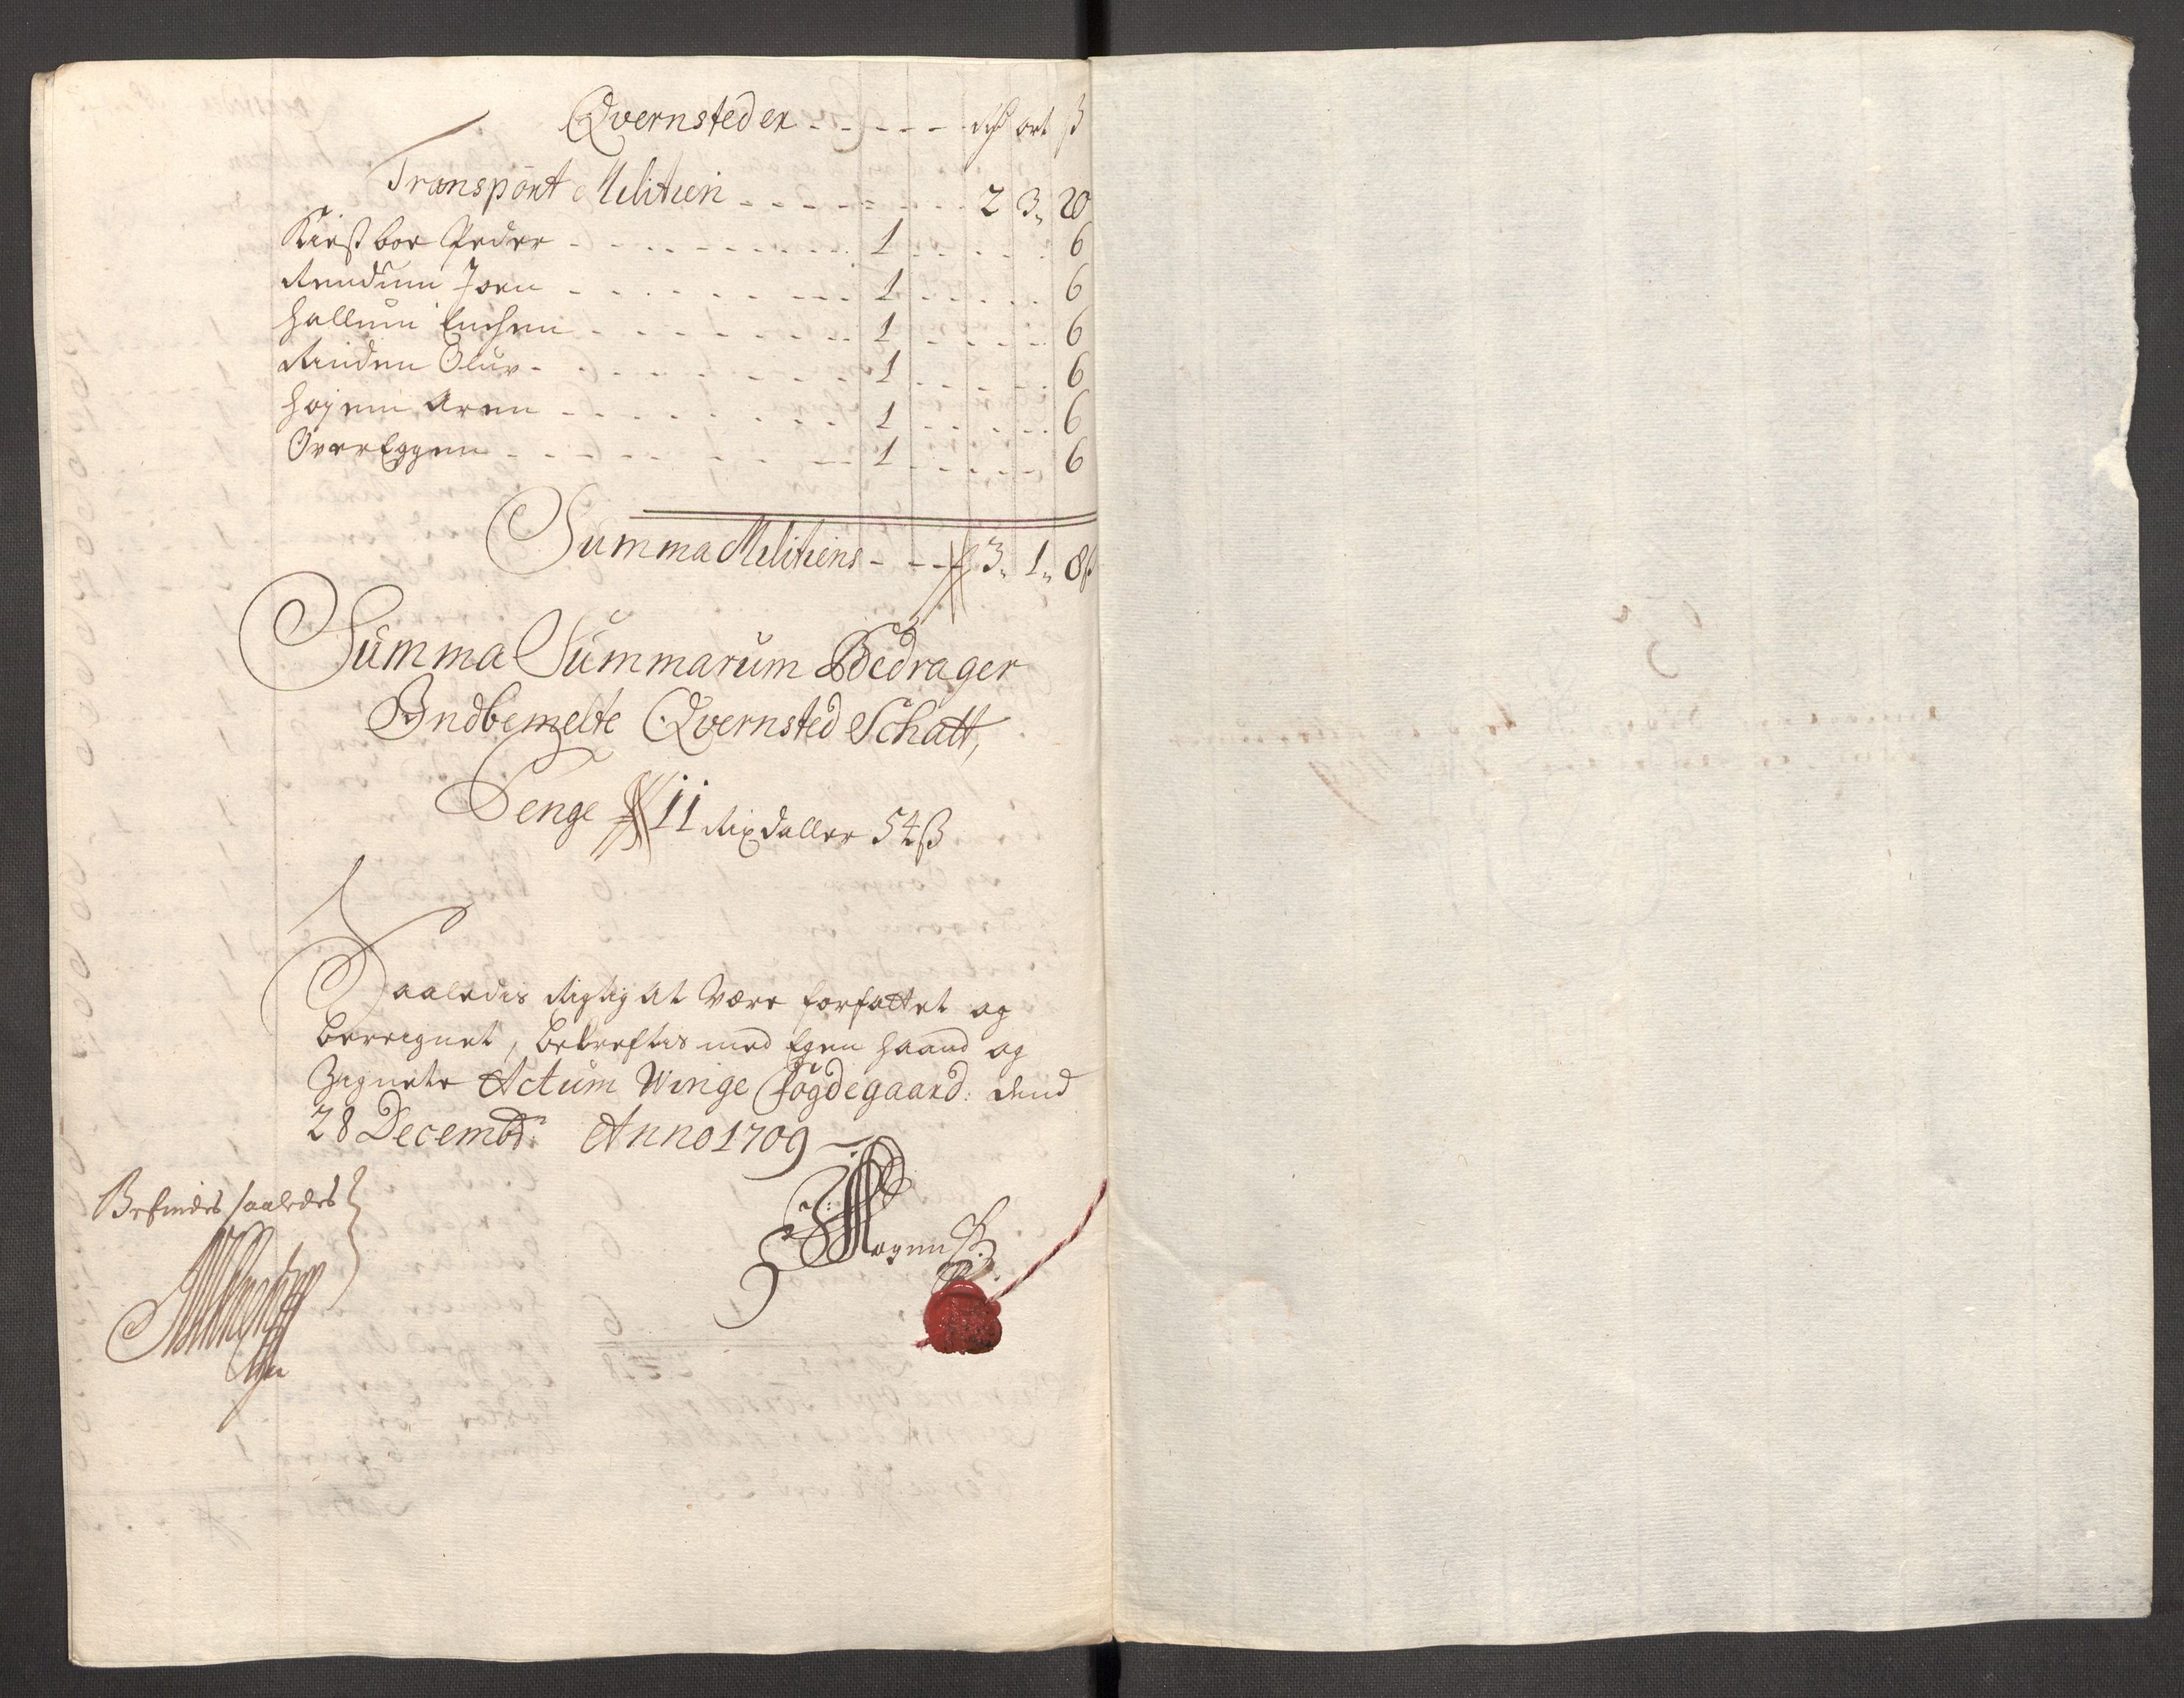 Qvernsteder - - - - - Rd ort ß
Transport Militien - - - - - - - 2 3„ 20
Kirstboe Peder - - - - - - - 1 - - - - 6
Rendum Joen - - - - - - - 1 - - - - 6
Hallum Enchen - - - - - - - 1 - - - - 6
Rinden Oluv - - - - - - - 1 - - - - 6
Hojem Aren - - - - - - - 1 - - - - 6
Over Eggen - - - - - - - 1 - - - - 6
Summa Militiens - - - - 3„ 1„ 8ß
Summa Summarum Bedrager
Bndbemelte Qvernsted Schatt,
Penge 11 Rixdaller 54ß
Saaledis Rigtig at Være forfattet og
beregnet, bekreftis med Egen haand og
Zignete Actum Winge Fogdegaard: dend
28 Decembr: Anno 1709
Befindes saaledes